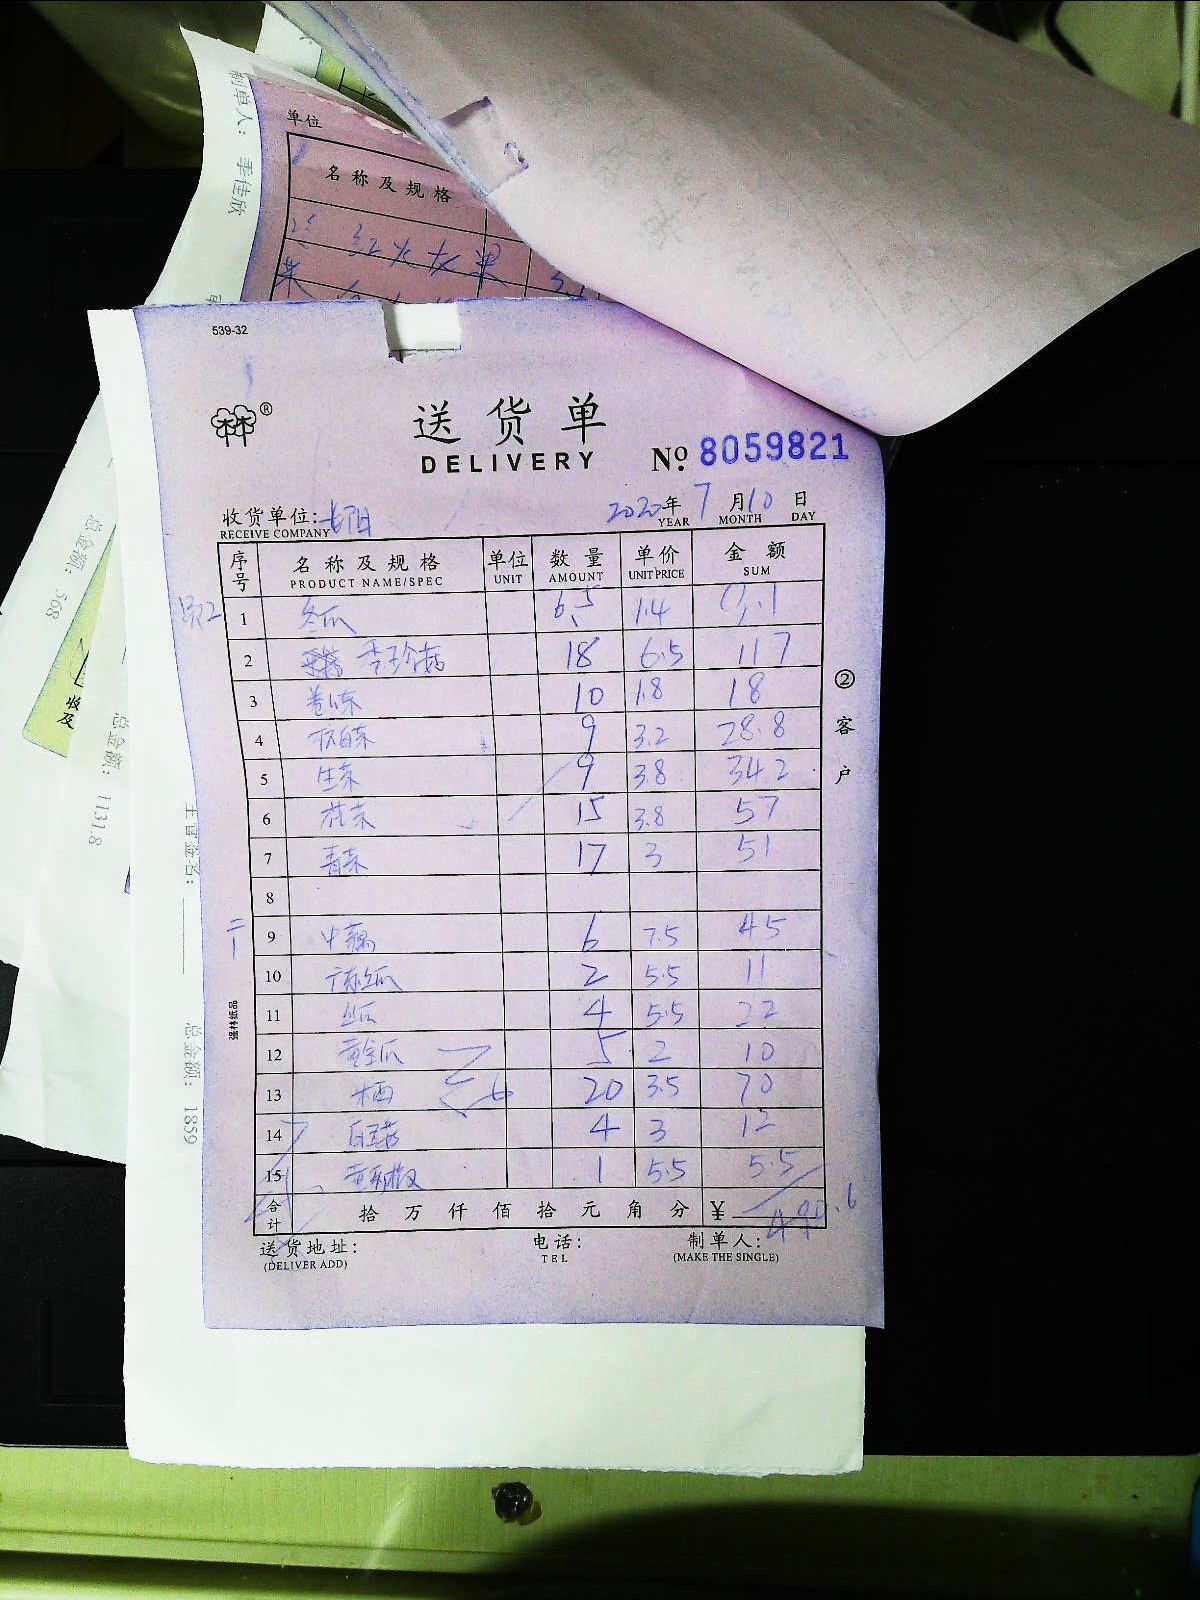 制单人: 李佳欣
单位
名称及规格
红火大
539-32
林 ®
送货单
DELIVERY
Nº 8059821
收货单位:长阳 2020年7月10日
RECEIVE COMPANY YEAR MONTH DAY
序号 名称及规格 单位 数量 单价 金额
PRODUCT NAME/SPEC UNIT AMOUNT UNIT PRICE SUM
1 冬瓜 6.5 1.4 9.1
2 秀珍菇 18 6.5 117
3 卷心菜 10 1.8 18
4 大白菜 9 3.2 28.8
5 生菜 9 3.8 34.2
6 花菜 15 3.8 57
7 青菜 17 3 51
8
9 中藕 6 7.5 45
10 2 5.5 11
11 丝瓜 4 5.5 22
12 黄金瓜 5 2 10
13 20 3.5 70
14 4 3 12
15 1 5.5 5.5
合计 拾万仟佰拾元角分 ¥ 490.6
送货地址: 电话: 制单人:
(DELIVER ADD) TEL (MAKE THE SINGLE)
②客户
强林纸品
总金额: 568
收及
总金额: 1131.8
主管签名:
总金额: 1859